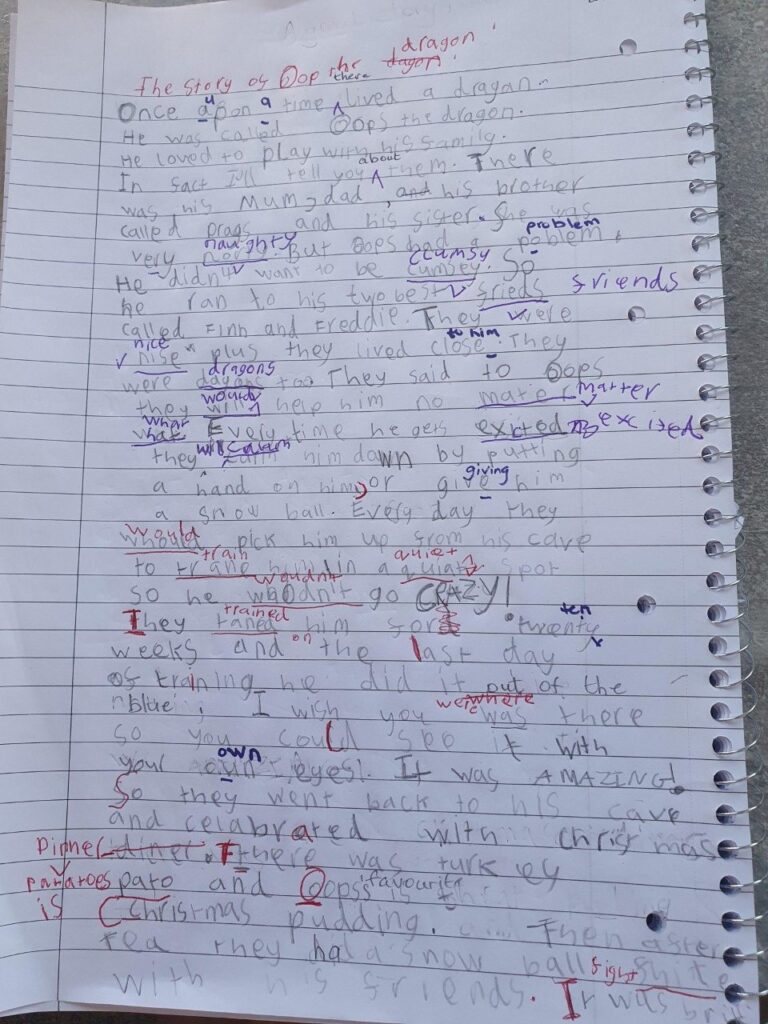 The Story of Oop the dagon. dragon
Once upon a time there lived a dragan.
He was called Oops the dragon.
He loved to play with his family.
In fact I'll tell you about them. There
was his Mum, dad, and his brother
called Drags and his sister. She was
very naughty. But Oops had a poblem. problem
He didn't want to be cumsey. clumsy So
he ran to his two best frieds friends
called Finn and Freddie. They were
nise nice plus they lived close to him. They
were dagans dragons too They said to Oops
they will would help him no mater matter
what what Every time he gets exicted excited
they will calm him down by putting
a hand on him, or give giving him
a snow ball. Every day they
whould would pick him up from his cave
to trane train him in a quiat quiet spot
so he whodn't wouldn't go CRAZY!
They taned trained him for twenty ten
weeks and on the last day
of training he did it out of the
blue, I wish you was were where there
so you could see it with
your own eyes! It was AMAZING!
So they went back to his cave
and celabrated with christmas
diner Dinner. There was turkey
pato patatoes and Oops's favourite
is Christmas pudding. Then after
tea they had a snow ball fhite fight
with his friends. It was